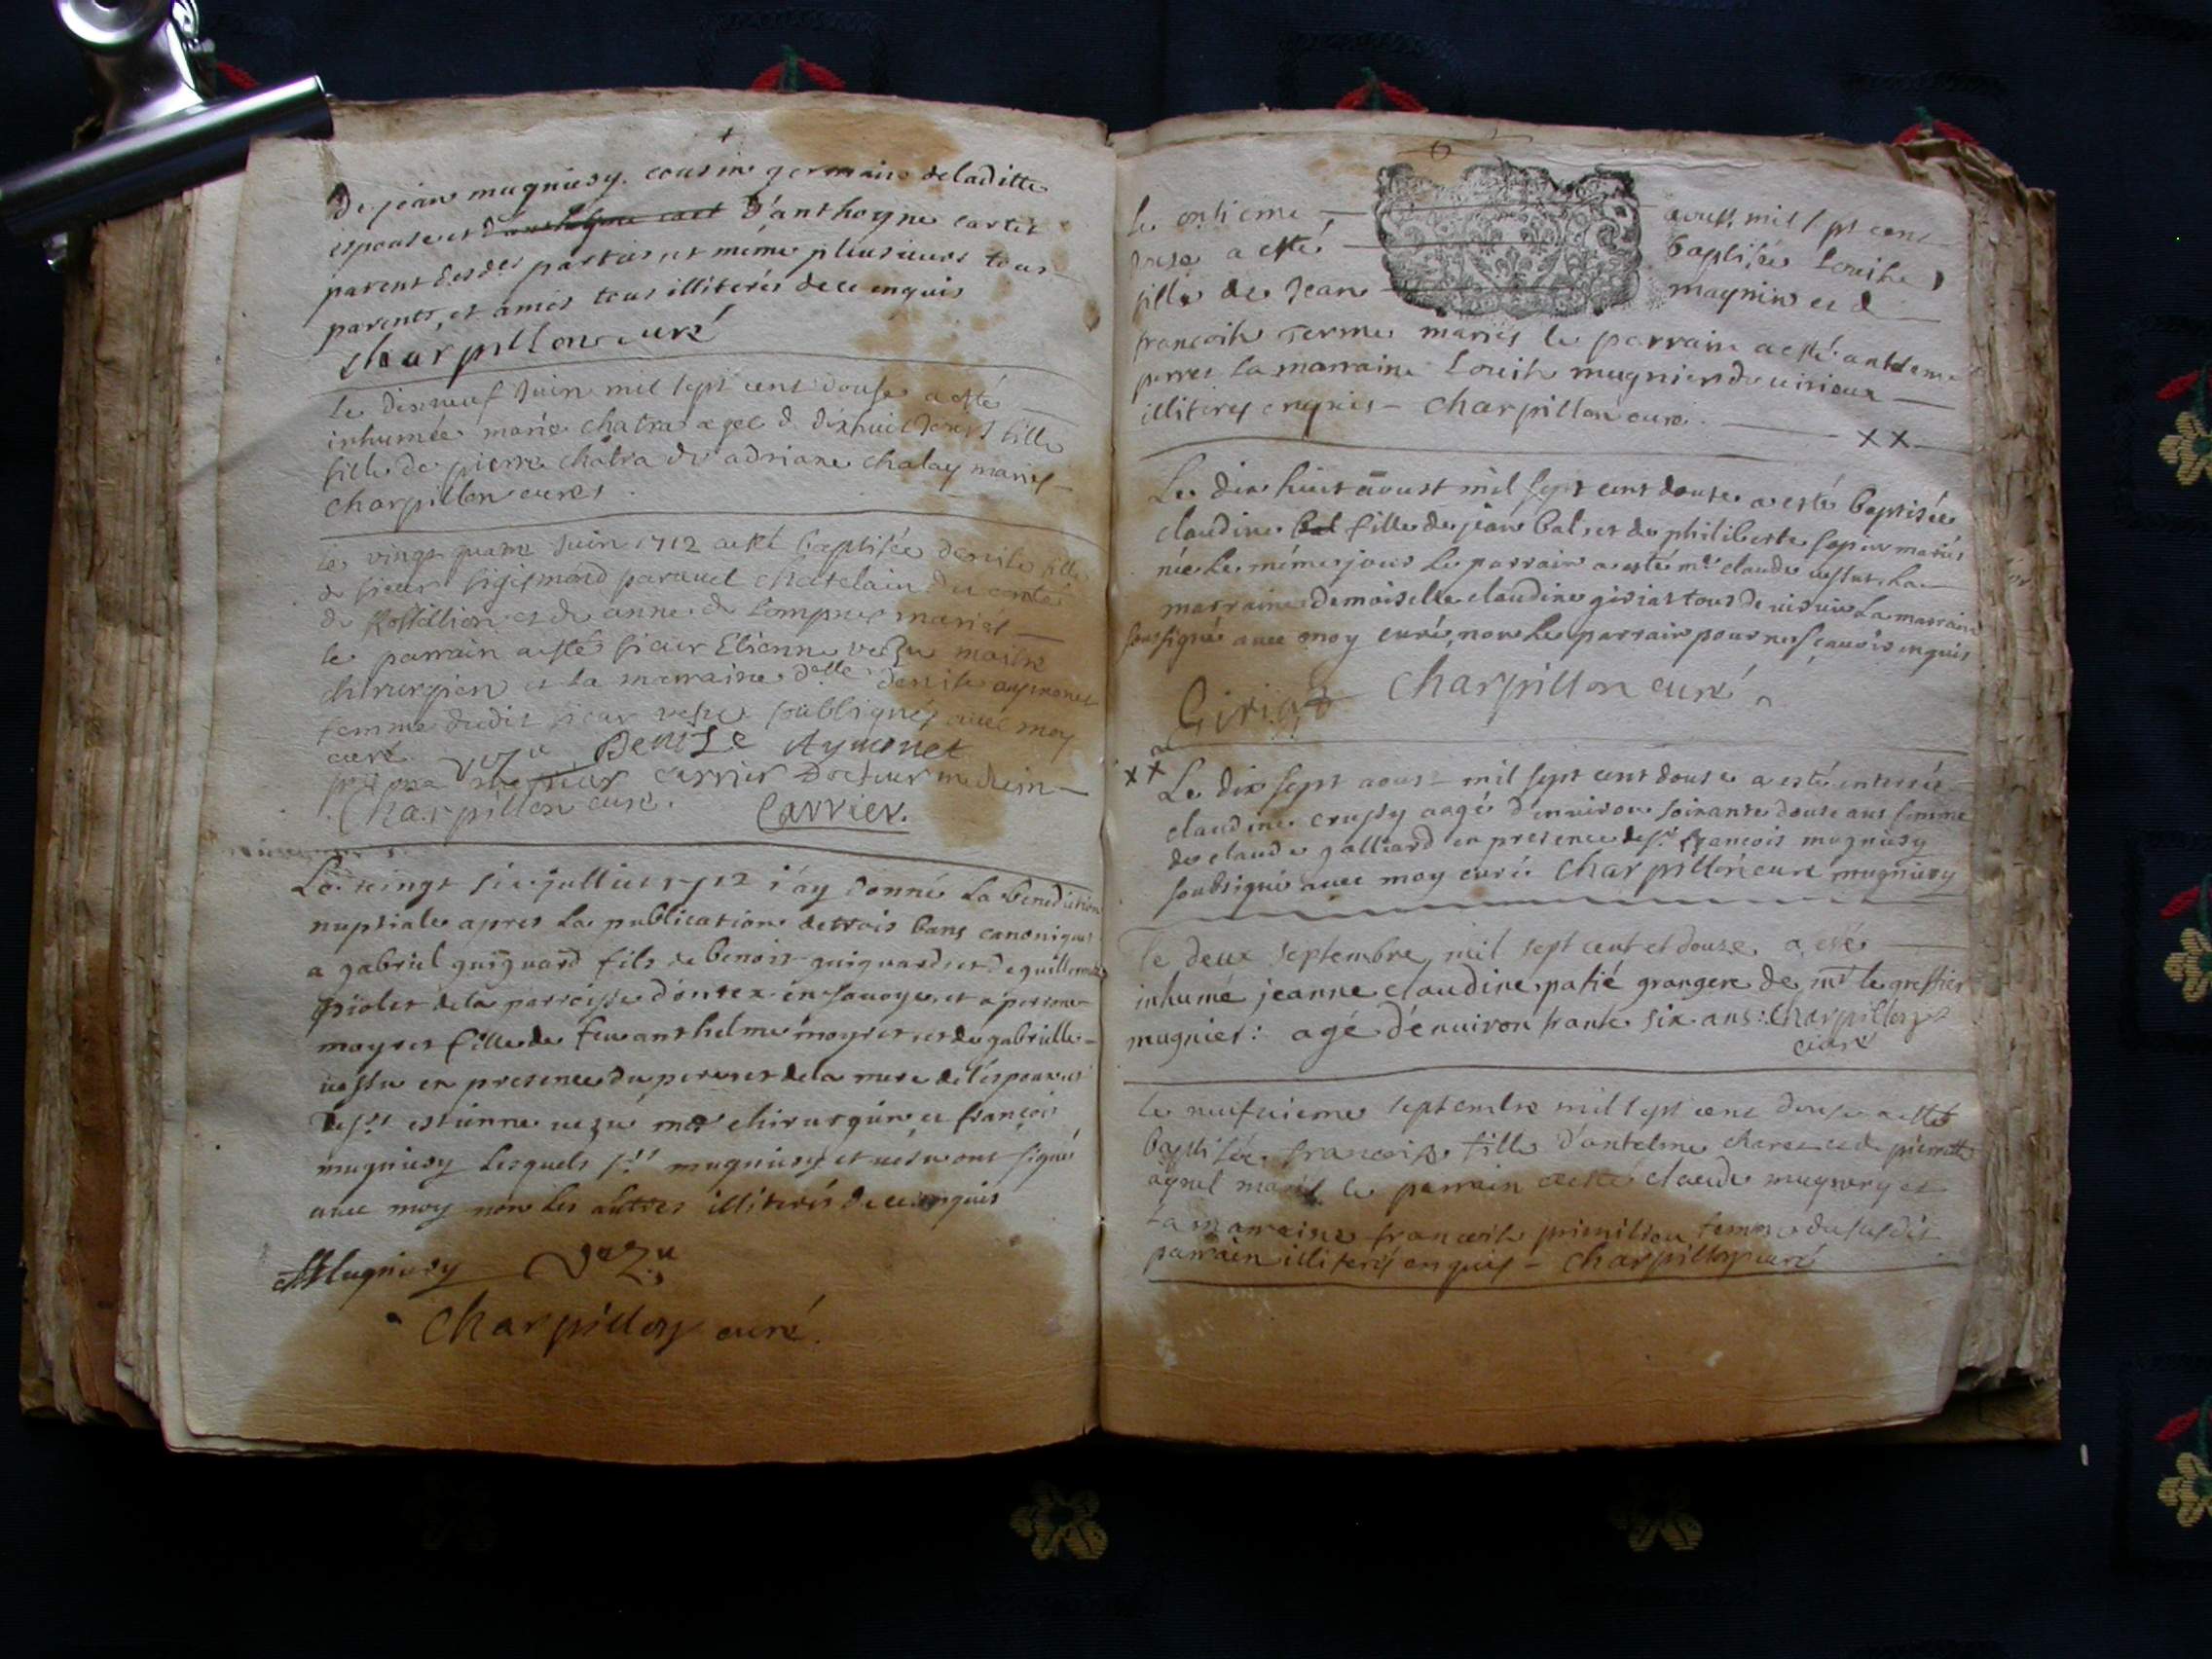 De jean mugniery cousin germain de laditte
espouse et d'anthoyne cartet
parent desdes parties, et même plusieurs tous
parents, et amis tous illiterés de ce enquis
charpillon curé
le dixneuf Juin mil sept cent douse a esté
inhumée marie chatra agee d dixhuict fille
fille de pierre chatra & d adriane chalay mariés
charpillon curé
le vingt quatre Juin 1712 a esté baptisée denise fille
d sieur sigismond chatelain du conté
d Rossillion et d anne d Lompnes mariés
le parrain a esté sieur Etienne vezu maitre
chirurgien et la marraine delle denise aymonet
femme dudit sieur vezu soubsignés avec moy
curé vezu Denise Aymonet
carrier Docteur medecin
Charpillon curé. Carrier.
Le vingt six julliet 1712 i'ay donné la benediction
nuptiale apres la publication de trois bans canoniques
a gabriel guiguard fils de benoit guiguard et de guillermette
piolet de la parroisse d'ontex en savoye, et a perrone
moyret fille de feu anthelme moyret et de gabrielle
vessu en presence du pere et de la mere de l'espouse et
de srs estienne vezu me chirurgien et françois
mugniery lesquels srs mugniery et vezu ont signé
avec moy non les autres illiterés de ce enquis
Mugniery Vezu
Charpillon curé.
6
le onzieme aoust mil sept cent
douse a esté baptisée Louise
fille de Jean magnin et d
francoise terme mariés le parrain a esté anthelme
perret la marraine Louise mugnier de virieux
illiterés enquis - charpillon curé.
x x
Le dix huit aoust mil sept cent douse a esté baptisée
claudine bal fille de jean bal, et de philiberte sapin mariés
née le même jour le parrain a esté mr claude vessu, la
marraine demoiselle claudine giriat tous de la marraine
soussigné avec moy curé, non le parrain pour ne scavoir enquis
Giriat Charpillon curé
x x Le dix sept aoust mil sept cent douse a esté enterrée
claudine crussy aagé d'environ soixante douse ans femme
de claude galliard en presence de sr françois mugniery
soubsigné avec moy curé. Charpillon curé mugniery
le deux septembre mil sept cent et douse a esté
inhumé jeanne claudine patié grangere de mr le greffier
mugnier: agé d'environ trante six ans: Charpillon
curé
le neufvieme septembre mil sept cent douse a esté
baptisée françoise fille d'antelme charet et d pierrette
aynel mariés le parrain a esté claude mugnery et
la marraine francoise femme du susdit
parrain illiterés enquis - charpillon curé